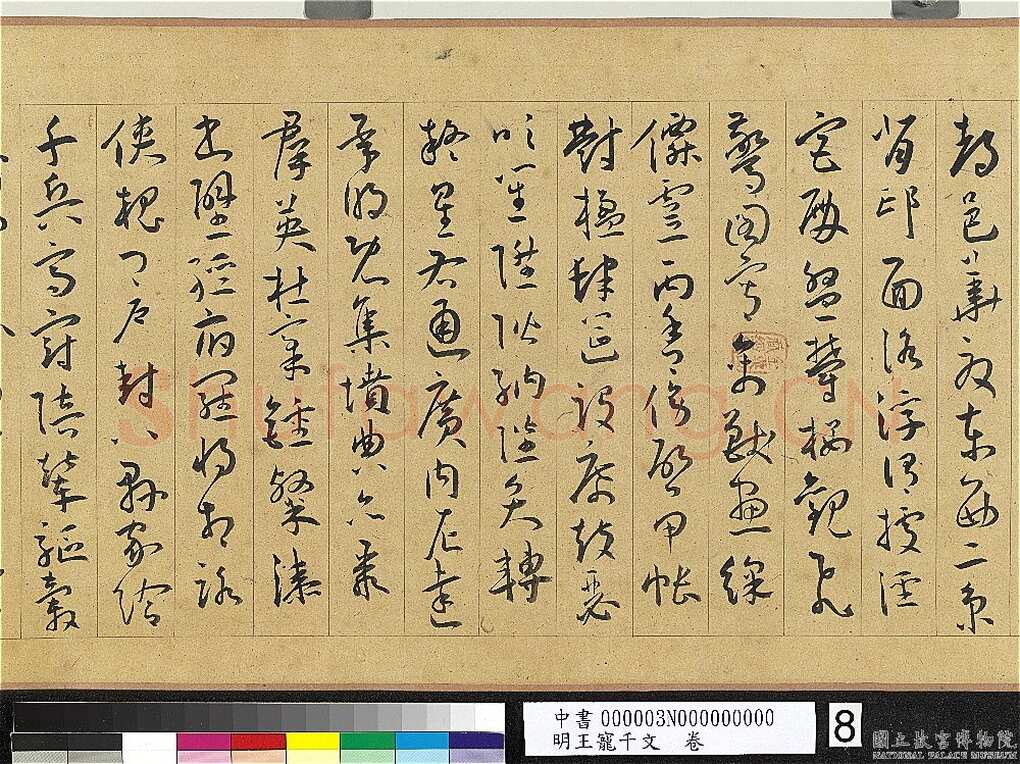 都邑華夏東西二京
背邙面洛浮渭據涇
宮殿盤鬱樓觀飛
驚圖寫禽獸畫綵
僊靈丙舍傍啟甲帳
對楹肆筵設席鼓瑟
吹笙陞階納陛弁轉
疑星右通廣內左達
承明既集墳典亦聚
羣英杜稾鍾隸漆
書壁經府羅將相路
俠槐卿戶封八縣家給
千兵高冠陪輦驅轂
Shufawang.CN
中書 000003N000000000
明王寵千文 卷
8
國立故宮博物院
NATIONAL PALACE MUSEUM